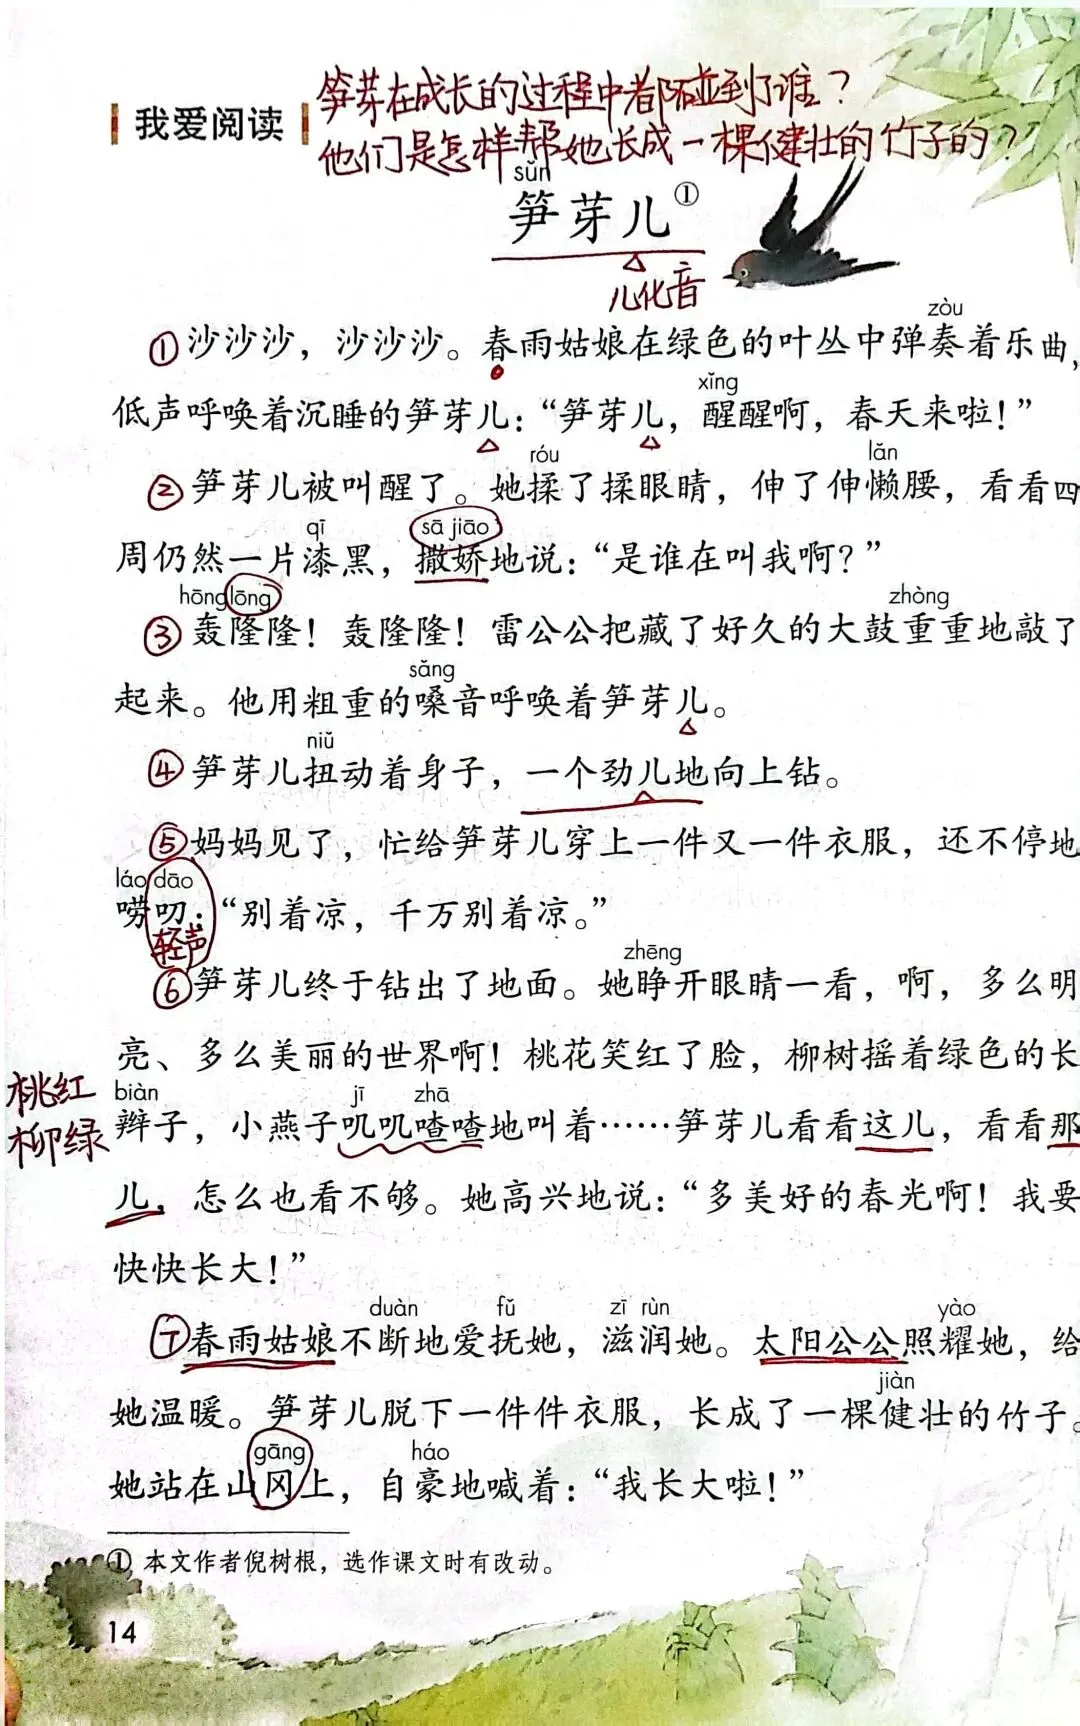 笋芽在成长的过程中都碰到了谁？
我爱阅读
他们是怎样帮她长成一棵健壮的竹子的？
sǔn
笋芽儿①
儿化音
zòu
①沙沙沙，沙沙沙。春雨姑娘在绿色的叶丛中弹奏着乐曲，
xǐng
低声呼唤着沉睡的笋芽儿：“笋芽儿，醒醒啊，春天来啦！”
róu lǎn
②笋芽儿被叫醒了。她揉了揉眼睛，伸了伸懒腰，看看四
qī sā jiāo
周仍然一片漆黑，撒娇地说：“是谁在叫我啊？”
hōng lōng zhòng
③轰隆隆！轰隆隆！雷公公把藏了好久的大鼓重重地敲了
sǎng
起来。他用粗重的嗓音呼唤着笋芽儿。
niǔ
④笋芽儿扭动着身子，一个劲儿地向上钻。
⑤妈妈见了，忙给笋芽儿穿上一件又一件衣服，还不停地
láo dāo
唠叨：“别着凉，千万别着凉。”
轻声
zhēng
⑥笋芽儿终于钻出了地面。她睁开眼睛一看，啊，多么明
亮、多么美丽的世界啊！桃花笑红了脸，柳树摇着绿色的长
桃红
柳绿
biàn jī zhā
辫子，小燕子叽叽喳喳地叫着……笋芽儿看看这儿，看看那
儿，怎么也看不够。她高兴地说：“多美好的春光啊！我要
快快长大！”
duàn fǔ zī rùn yào
⑦春雨姑娘不断地爱抚她，滋润她。太阳公公照耀她，给
jiàn
她温暖。笋芽儿脱下一件件衣服，长成了一棵健壮的竹子。
gāng háo
她站在山冈上，自豪地喊着：“我长大啦！”
① 本文作者倪树根，选作课文时有改动。
14